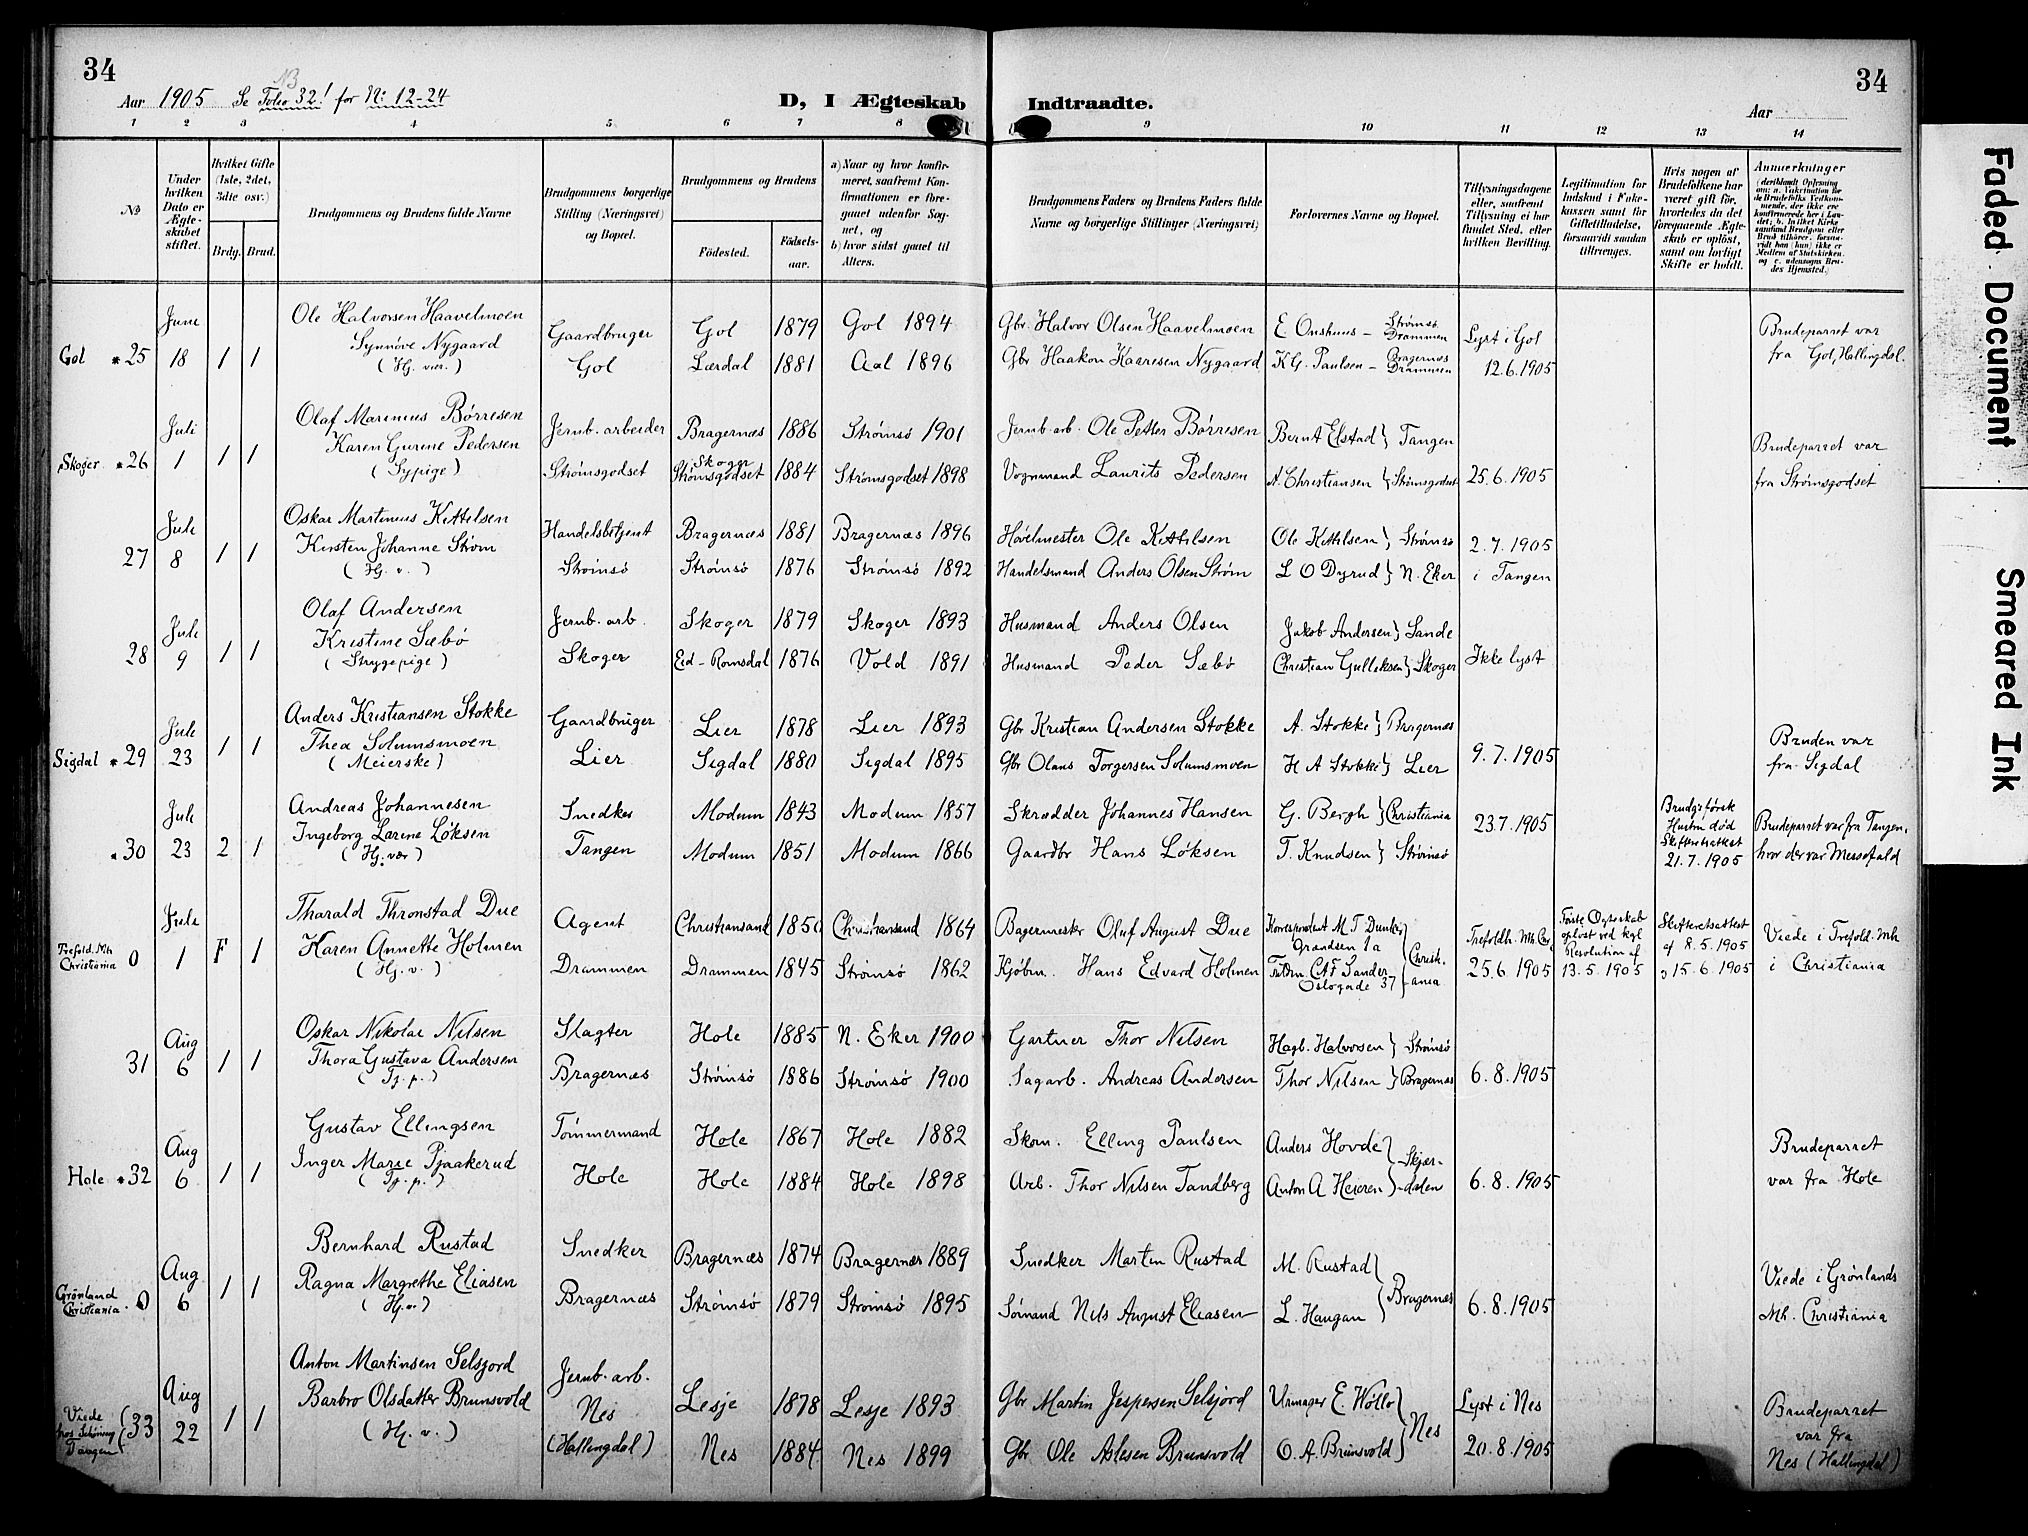 34
Aar 1905 Se Folio 32! for N: 12-24
NB
D, I Ægteskab Indtraadte.
34
Aar
1 2 3 4 5 6 7 8 9 10 11 12 13 14
No
Under hvilken Dato er Ægteskabet stiftet.
Hvilket Gifte (1ste, 2det, 3die osv.)
Brdg. Brud.
Brudgommens og Brudens fulde Navne
Brudgommens borgerlige Stilling (Næringsvei) og Bopæl.
Brudgommens og Brudens
Fødested.
Fødselsaar.
a) Naar og hvor konfirmeret, saafremt Konfirmationen er foregaaet udenfor Sognet, og
b) hvor sidst gaaet til Alters.
Brudgommens Faders og Brudens Faders fulde Navne og borgerlige Stillinger (Næringsvei)
Forlovernes Navne og Bopæl.
Tillysningsdagene eller, saafremt Tillysning ei har fundet Sted, efter hvilken Bevilling.
Legitimation for Indskud i Enkekassen samt for Giftetilladelse, forsaavidt saadan tiltrænges.
Hvis nogen af Brudefolkene har været gift før, hvorledes da det foregaaende Ægteskab er opløst, samt om lovligt Skifte er holdt.
Anmærkninger
Gol * 25 June 18 1 1
Ole Halvorsen Haavelmoen Gaardbruger Gol 1879 Gol 1894 Gbr. Halvor Olsen Haavelmoen E Onshuus - Strømsø Drammen Lyst i Gol Brudeparret var
Synnøve Nygaard (Hj. vær.) Gol Lærdal 1881 Aal 1896 Gbr Haakon Kaaresen Nygaard K G. Paulsen - Bragernæs Drammen 12.6.1905 fra Gol, Hallingdal.
Skoger * 26 Juli 1 1 1
Olaf Marinius Børresen Jernb. arbeider Bragernæs 1886 Strømsø 1901 Jernb. arb. Ole Petter Børresen Bernt Elstad } Tangen Brudeparret var
Karen Gurine Pedersen (Sypige) Strømsgodset Skoger Strømsgodset 1884 Strømsgodset 1898 Vognmand Laurits Pedersen A. Christiansen } Strømsgodset 25.6.1905 fra Strømsgodset
27 Juli 8 1 1
Oskar Martinius Kittilsen Handelsbetjent Bragernæs 1881 Bragernæs 1896 Høvelmester Ole Kittilsen Ole Kittilsen } Strømsø 2.7.1905
Kirsten Johanne Strøm (Hj. v.) Strømsø Strømsø 1876 Strømsø 1892 Handelsmand Anders Olsen Strøm L O Dyrud } N. Eker i Tangen
28 Juli 9 1 1
Olaf Andersen Jernb. arb. Skoger 1879 Skoger 1893 Husmand Anders Olsen Jakob Andersen } Sande
Kristine Sæbø (Strygepige) Skoger Eid - Romsdal 1876 Vold 1891 Husmand Peder Sæbø Christian Gulliksen } Skoger Ikke lyst
Sigdal * 29 Juli 23 1 1
Anders Kristiansen Stokke Gaardbruger Lier 1878 Lier 1893 Gbr Kristian Andersen Stokke A. Stokke } Bragernæs Bruden var
Thea Solumsmoen (Meierske) Lier Sigdal 1880 Sigdal 1895 Gbr Olaus Torgersen Solumsmoen H A Stokke } Lier 9.7.1905 fra Sigdal
* 30 Juli 23 2 1
Andreas Johannesen Snedker Modum 1843 Modum 1857 Skrædder Johannes Hansen G. Bergh } Christiania 23.7.1905 Brudg's første Hustru død Skifteretsattest 21.7.1905 Brudeparret var fra Tangen,
Ingeborg Larine Løksen (Hj. vær) Tangen Modum 1851 Modum 1866 Gaardbr Hans Løksen T. Knudsen } Strømsø hvor der var Messefald
Trefold. Mh Christiania 0 Juli 1 F 1
Tharald Thronstad Due Agent Christiansand 1850 Christiansand 1864 Bagermester Oluf August Due Korrespondent M. T. Dunker Grandsen 1a } Christiania Trefoldh. Mh. Chr. Første Ægteskab opløst ved kgl Resolution af 13.5.1905 Skifteretsattest af 8.5.1905 Viede i Trefold. Mh
Karen Annette Holmen (Hj. v.) Drammen Drammen 1845 Strømsø 1862 Kjøbm. Hans Edvard Holmen C.A.F Sander Oslogade 37 25.6.1905 15.6.1905 i Christiania
31 Aug 6 1 1
Oskar Nikolai Nilsen Slagter Hole 1885 N. Eker 1900 Gartner Thor Nilsen Hagb. Halvorsen } Strømsø
Thora Gustava Andersen (Tj. p.) Bragernæs Strømsø 1886 Strømsø 1900 Sagarb. Andreas Andersen Thor Nilsen } Bragernæs 6.8.1905
Hole * 32 Aug 6 1 1
Gustav Ellingsen Tømmermand Hole 1867 Hole 1882 Skom. Elling Paulsen Anders Hovde } Skjærdalen Brudeparret
Inger Marie Pjaakerud (Tj. p.) Hole Hole 1884 Hole 1898 Arb. Thor Nilsen Tandberg Anton A Heieren 6.8.1905 var fra Hole
Grønland Christiania 0 Aug 6 1 1
Bernhard Rustad Snedker Bragernæs 1874 Bragernæs 1889 Snedker Martin Rustad M. Rustad } Bragernæs Viede i Grønlands
Ragna Margrethe Eliasen (Hj. v.) Bragernæs Strømsø 1879 Strømsø 1895 Sømand Nils August Eliasen L. Haugan 6.8.1905 Mh. Christiania
Viede hos Tangen 33 Aug 22 1 1
Anton Martinsen Selsjord Jernb. arb. Lesje 1878 Lesje 1893 Gbr Martin Jespersen Selsjord Urmager E. Wøllo } Nes Lyst i Nes Brudeparret
Barbro Olsdatter Brunsvold (Hj. v.) Nes (Hallingdal) Nes 1884 Nes 1899 Gbr Ole Aslesen Brunsvold O. A. Brunsvold 20.8.1905 var fra Nes (Hallingdal)
Faded Document
Smeared Ink